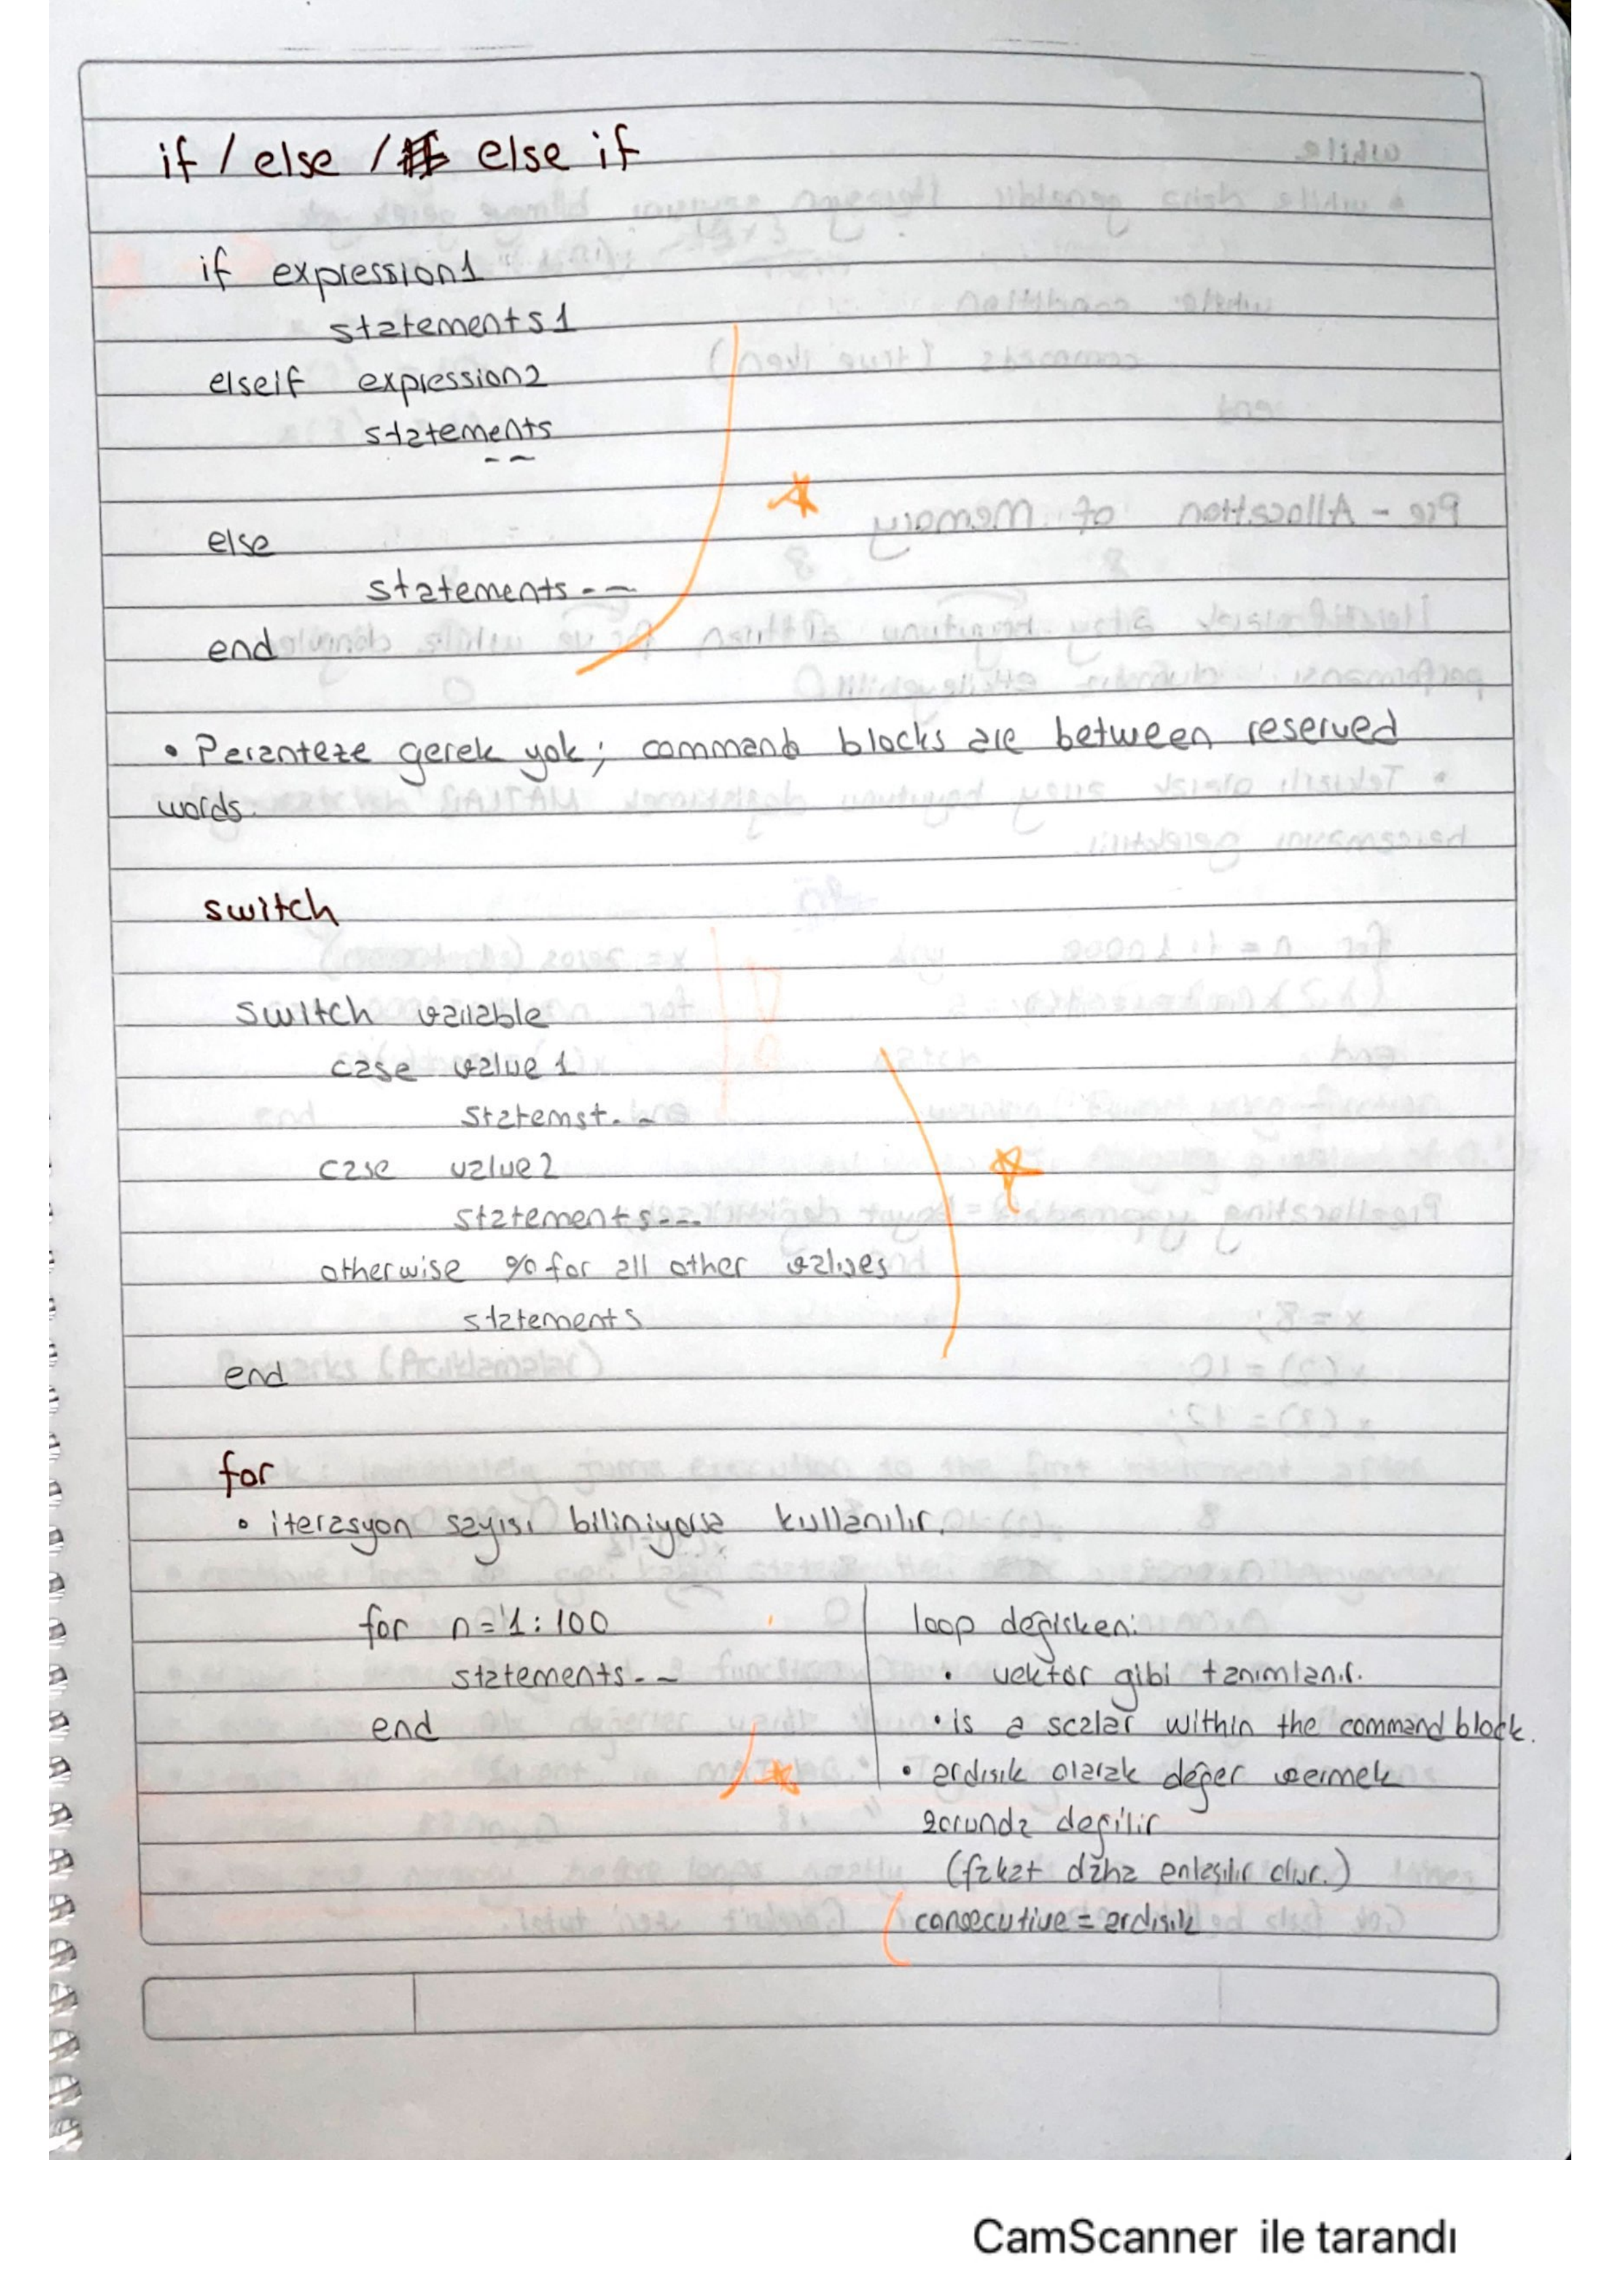 if / else / else if
if expression1
statements1
elseif expression2
statements
--
else
statements---
end
• Peranteze gerek yok; command blocks are between reserved
words.
switch
switch variable
case value 1
statemst. -
case value2
statements---
otherwise % for all other values
statements
end
for
• iterasyon sayısı biliniyorsa kullanılır.
for n=1:100
statements--
end
loop değişken:
• vektör gibi tanımlanır.
• is a scalar within the command block.
• ardışık olarak değer vermek
zorunda değilir
(fakat daha anlaşılır olur.)
consecutive = ardışık
CamScanner ile tarandı